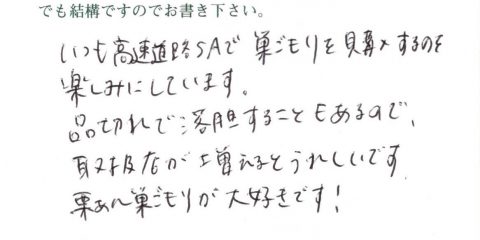 でも結構ですのでお書き下さい。
いつも高速道路SAで巣ごもりを購入するのを
楽しみにしています。
品切れで落胆することもあるので、
取扱店が増えるとうれしいです
栗あん巣ごもりが大好きです!